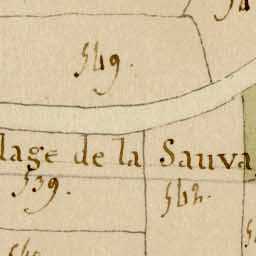 549.
lage de la Sauva
539.
542.